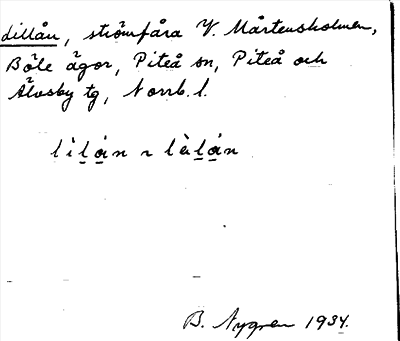 Lillån, strömfåra V. Mårtensholmen,
Böle ägor, Piteå sn, Piteå och
Älvsby tg, Norrb. l.
B. Nygren 1934.